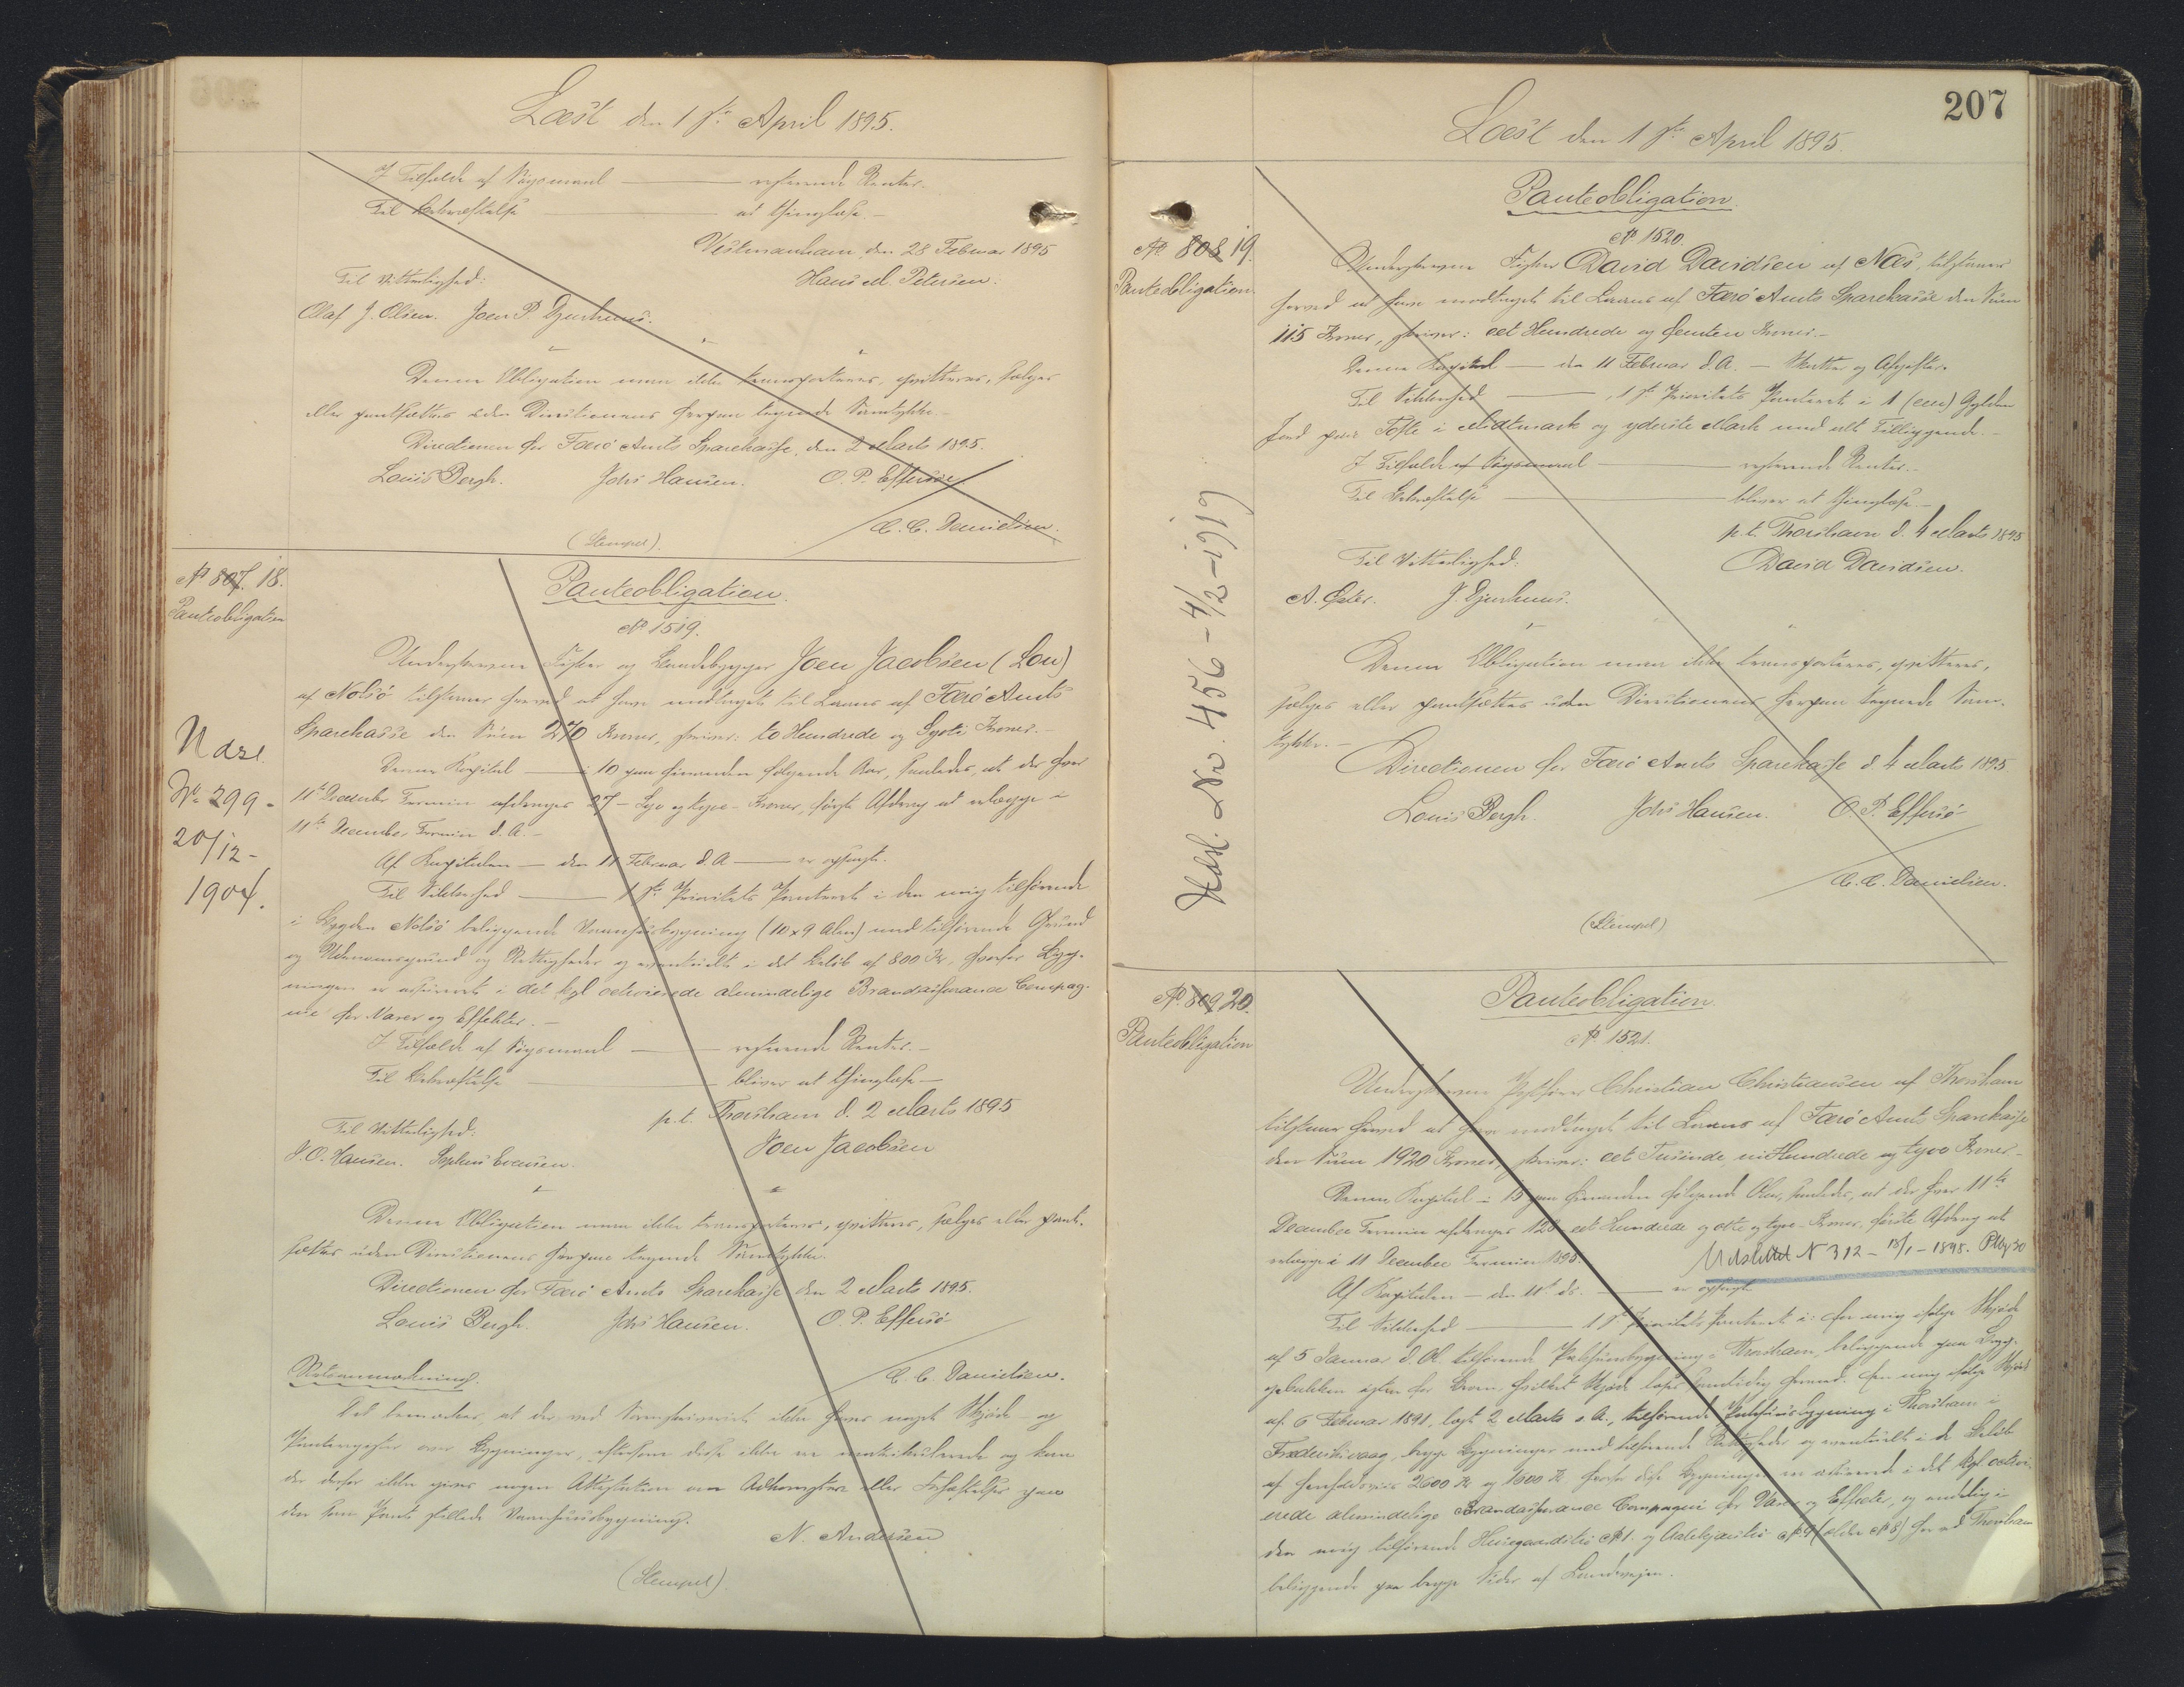 Læst den 1ste April 1895.
I Tilfælde af Søgsmaal — resterende Renter.
Til Bekræftelse — at thinglæse.—
Vestmanhavn, den 28 Februar 1895
Til Vitterlighed: Hans M. Petersen.
Olaf J. Olsen. Joen P. Djurhuus.
Denne Obligation maa ikke transporteres, qvitteres, sælges
eller pantsættes uden Directionens herpaa tegnede Samtykke.—
Directionen for Færö Amts Sparekasse, den 2 Marts 1895.
Louis Bergh. Johs Hansen. O. P. Effersöe
C. C. Danielsen.
(Stempel).
No 807. 18.
Panteobligation
Panteobligation.
No 1519.
Undertegnede Fisker og Huusebygger Joen Jacobsen (Lon)
af Nolsö tilstaaer herved at have modtaget til Laans af Færö Amts
Sparekasse den Sum 270 Kroner, skriver: to Hundrede og Syvti Kroner.—
Denne Kapital — i 10 paa hinanden følgende Aar, saaledes, at der hver
11te December Termin afdrages 27 — Syv og tyve — Kroner, første Afdrag at erlægge i
11te December Termin d. A.—
Af Kapitalen — den 11 Februar d. A — er opsagt.
Til Sikkerhed — 1ste Prioritets Panteret i den mig tilhørende
i Bygden Nolsö beliggende Vaanhusbygning (10 x 9 Alen) med tilhørende Grund
og Udenomsgrund og Rettigheder og eventuelt i det Beløb af 800 Kr, hvorfor Byg-
ningen er assureret i det kgl octroierede almindelige Brandassurance Compag-
nie for Varer og Effekter.—
I Tilfælde af Søgsmaal — resterende Renter.—
Til Bekræftelse — bliver at thinglæse—
p. t. Thorshavn d. 2 Marts 1895
Til Vitterlighed: Joen Jacobsen
J. O. Hansen. Sophus Evensen.
Denne Obligation maa ikke transporteres, qvitteres, sælges eller pant-
sættes uden Directionens herpaa tegnede Samtykke.
Directionen for Færö Amts Sparekasse den 2 Marts 1895.
Louis Bergh. Johs Hansen. O. P. Effersö
C. C. Danielsen.
Retsanmærkning.
Det bemærkes, at der ved Sorenskriveriet ikke føres noget Skjøde- og
Panteregister over Bygninger, eftersom disse ikke ere matrikulerede og kan
der derfor ikke gives nogen Attestation om Adkomster eller Behæftelser paa
den som Pant stillede Vaanhusbygning.
N. Andersen
(Stempel).
Udsl.
No 299-
20/12-
1904.
207
Læst den 1ste April 1895.
No 808 19.
Panteobligation
Panteobligation.
No 1520.
Undertegnede Fisker David Davidsen af Næs, tilstaaer
herved at have modtaget til Laans af Færö Amts Sparekasse den Sum
115 Kroner, skriver: eet Hundrede og femten Kroner.—
Denne Kapital — den 11 Februar d. A. — Skatter og Afgifter.
Til Sikkerhed — 1ste Prioritets Panteret i 1 (een) Gylden
Jord paa Tofte i Midtmark og yderste Mark med alt Tilliggende.—
I Tilfælde af Søgsmaal — resterende Renter.—
Til Bekræftelse — bliver at thinglæse.—
p. t. Thorshavn d. 4 Marts 1895
Til Vitterlighed: David Davidsen.
J. Djurhuus.
Denne Obligation maa ikke transporteres, qvitteres,
sælges eller pantsættes uden Directionens herpaa tegnede Sam-
tykke.—
Directionen for Færö Amts Sparekasse d. 4 Marts 1895
Louis Bergh. Johs Hansen. O. P. Effersö
C. C. Danielsen.
(Stempel)
Udsl. No. 456 - 4/2 - 1919
No. 809 20.
Panteobligation
Panteobligation.
No 1521.
Undertegnede Christian Christiansen af Thorshavn
tilstaaer herved at have modtaget til Laans af Færö Amts Sparekasse
den Sum 1920 Kroner, skriver: eet Tusinde, ni Hundrede og tyve Kroner.—
Denne Kapital i 15 paa hinanden følgende Aar, saaledes, at der hver 11te
December Termin afdrages 128 eet Hundrede og otte og tyve Kroner, første Afdrag at
erlægge i 11 December Termin 1895.
Udslettet N 312 - 18/1 - 1898.
Af Kapitalen — den 11t ds. — er opsagt
Til Sikkerhed — 1ste Prioritets Panteret i: den mig ifølge Skjøde
af 5 Januar d. A. tilhørende Pakhuusbygning i Thorshavn, beliggende paa
hvilket Skjøde læses samtidig hermed. Den mig ifølge Skjøde
af 6 Februar 1891, læst 2 Marts s. A., tilhørende Pakhuusbygning i Thorshavn i
Frederiksvaag, begge Bygninger med tilhørende Rettigheder og eventuelt i de Beløb
af henholdsvis 2600 Kr. og 1600 Kr. hvorfor disse Bygninger ere assurerede i det kgl. octroi-
erede almindelige Brandassurance Compagni for Varer og Effecter, og endelig i
den mig tilhørende No 1. og No 9 (ældre No 8) her ved Thorshavn
beliggende paa begge Sider af Landevejen.